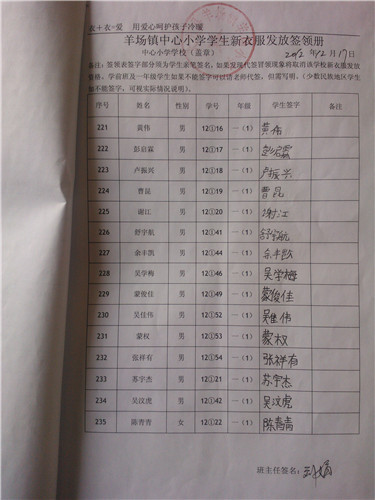 衣+衣=爱 用爱心呵护孩子冷暖
羊场镇中心小学学生新衣服发放签领册
中心小学学校(盖章) 2012年12月17日
备注:签领表签字部分须为学生亲笔签名,如果发现代签冒领现象将取消该学校新衣服发放
资格。学前班及一年级学生如果不能签字可以请老师代签,但需写明。(少数民族地区学生
如不能签字,可视实际情况说明)。
序号 姓名 性别 学号 学生签字 备注
221 黄伟 男 12①16 一(1) 黄伟
222 彭启霖 男 12①17 一(1) 彭启霖
223 卢振兴 男 12①18 一(1) 卢振兴
224 曹昆 男 12①19 一(1) 曹昆
225 谢江 男 12①20 一(1) 谢江
226 舒宇航 男 12①41 一(1) 舒宇航
227 余丰凯 男 12①44 一(1) 余丰凯
228 吴学梅 男 12①46 一(1) 吴学梅
229 蒙俊佳 男 12①49 一(1) 蒙俊佳
230 吴佳伟 男 12①52 一(1) 吴佳伟
231 蒙权 男 12①53 一(1) 蒙权
232 张祥有 男 12①54 一(1) 张祥有
233 苏宇杰 男 12①21 一(1) 苏宇杰
234 吴汶虎 男 12①42 一(1) 吴汶虎
235 陈青青 女 12①22 一(1) 陈青青
班主任签名: